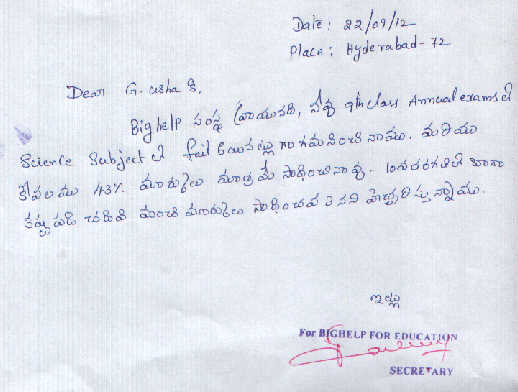 Date: 22/09/12
Place: Hyderabad-72
Dear G. usha కి,
Bighelp సంస్థ వ్రాయునది, నీవు 9th class Annual exams లో
Science Subject లో fail అయినట్లు గా గమనించినాము. మరియు
కేవలము 43% మార్కులు మాత్రమే సాధించినావు. 10వ తరగతిలో బాగా
కష్టపడి చదివి మంచి మార్కులు సాధించవలెనని హెచ్చరిస్తున్నాము.
ఇట్లు
For BIGHELP FOR EDUCATION
SECRETARY